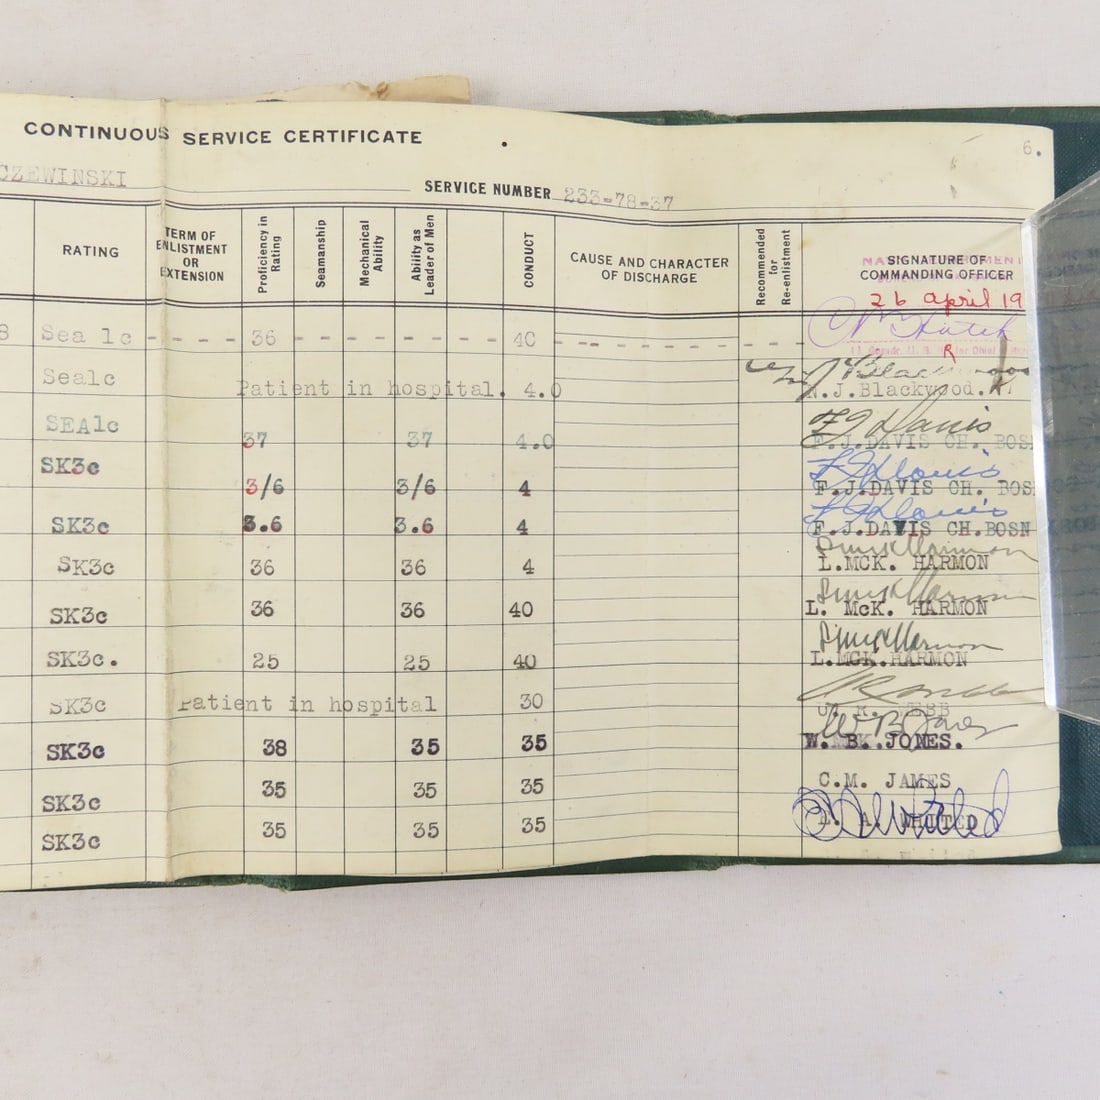 CONTINUOUS SERVICE CERTIFICATE
6.
CZEWINSKI
SERVICE NUMBER 233-78-37
RATING
TERM OF ENLISTMENT OR EXTENSION
Proficiency in Rating
Seamanship
Mechanical Ability
Ability as Leader of Men
CONDUCT
CAUSE AND CHARACTER OF DISCHARGE
Recommended for Re-enlistment
SIGNATURE OF COMMANDING OFFICER
26 april 19
8 Sea 1c - - - - 36 - - - - - - 40 - - - - - - - - -
Sea1c Patient in hospital. 4.0 N.J.Blackwood.
SEA1c 37 37 4.0 F.J.DAVIS CH. BOS
SK3c 3/6 3/6 4 F.J.DAVIS CH. BOS
SK3c 3.6 3.6 4 F.J.DAVIS CH.BOSN
SK3c 36 36 4 L.MCK. HARMON
SK3c 36 36 40 L. McK. HARMON
SK3c. 25 25 40 L.MCK.HARMON
SK3c Patient in hospital 30
SK3c 38 35 35 W. B. JONES.
SK3c 35 35 35 C.M. JAMES
SK3c 35 35 35 WHITED